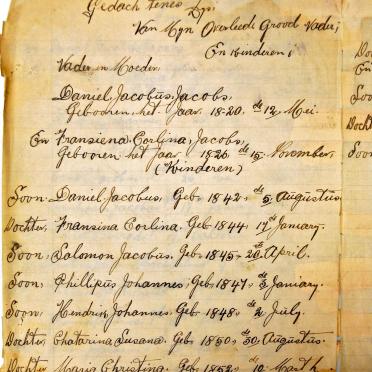 Gedach tenes Dys
Van Myn Overlede Grood Vader,
En kinderen,
Vader en Moeder.
Daniel Jacobus, Jacobs,
Gebooren, het Jaar. 18-20. de 12, Mei.
En Fransiena Corlina, Jacobs,
Gebooren het Jaar. 1826 de 15, November,
(Kinderen)
Soon, Daniel Jacobus, Geb, 1842, de 5, Augustus
Dochter, Fransina Corlina. Geb, 1844, 17 de January.
Soon, Salomon Jacobus, Geb, 1845, 20 de April.
Soon, Phillipus Johannes, Geb, 1847, de 3 January.
Soon, Hendrik Johannes, Geb, 1848, de 2, July.
Dochter, Chatarina Susana, Geb, 1850, de 30, Augustus.
Dochter Maria Christina, Geb, 1852, de 10, Marth
Doch
En
Soon
Dochte
Soon